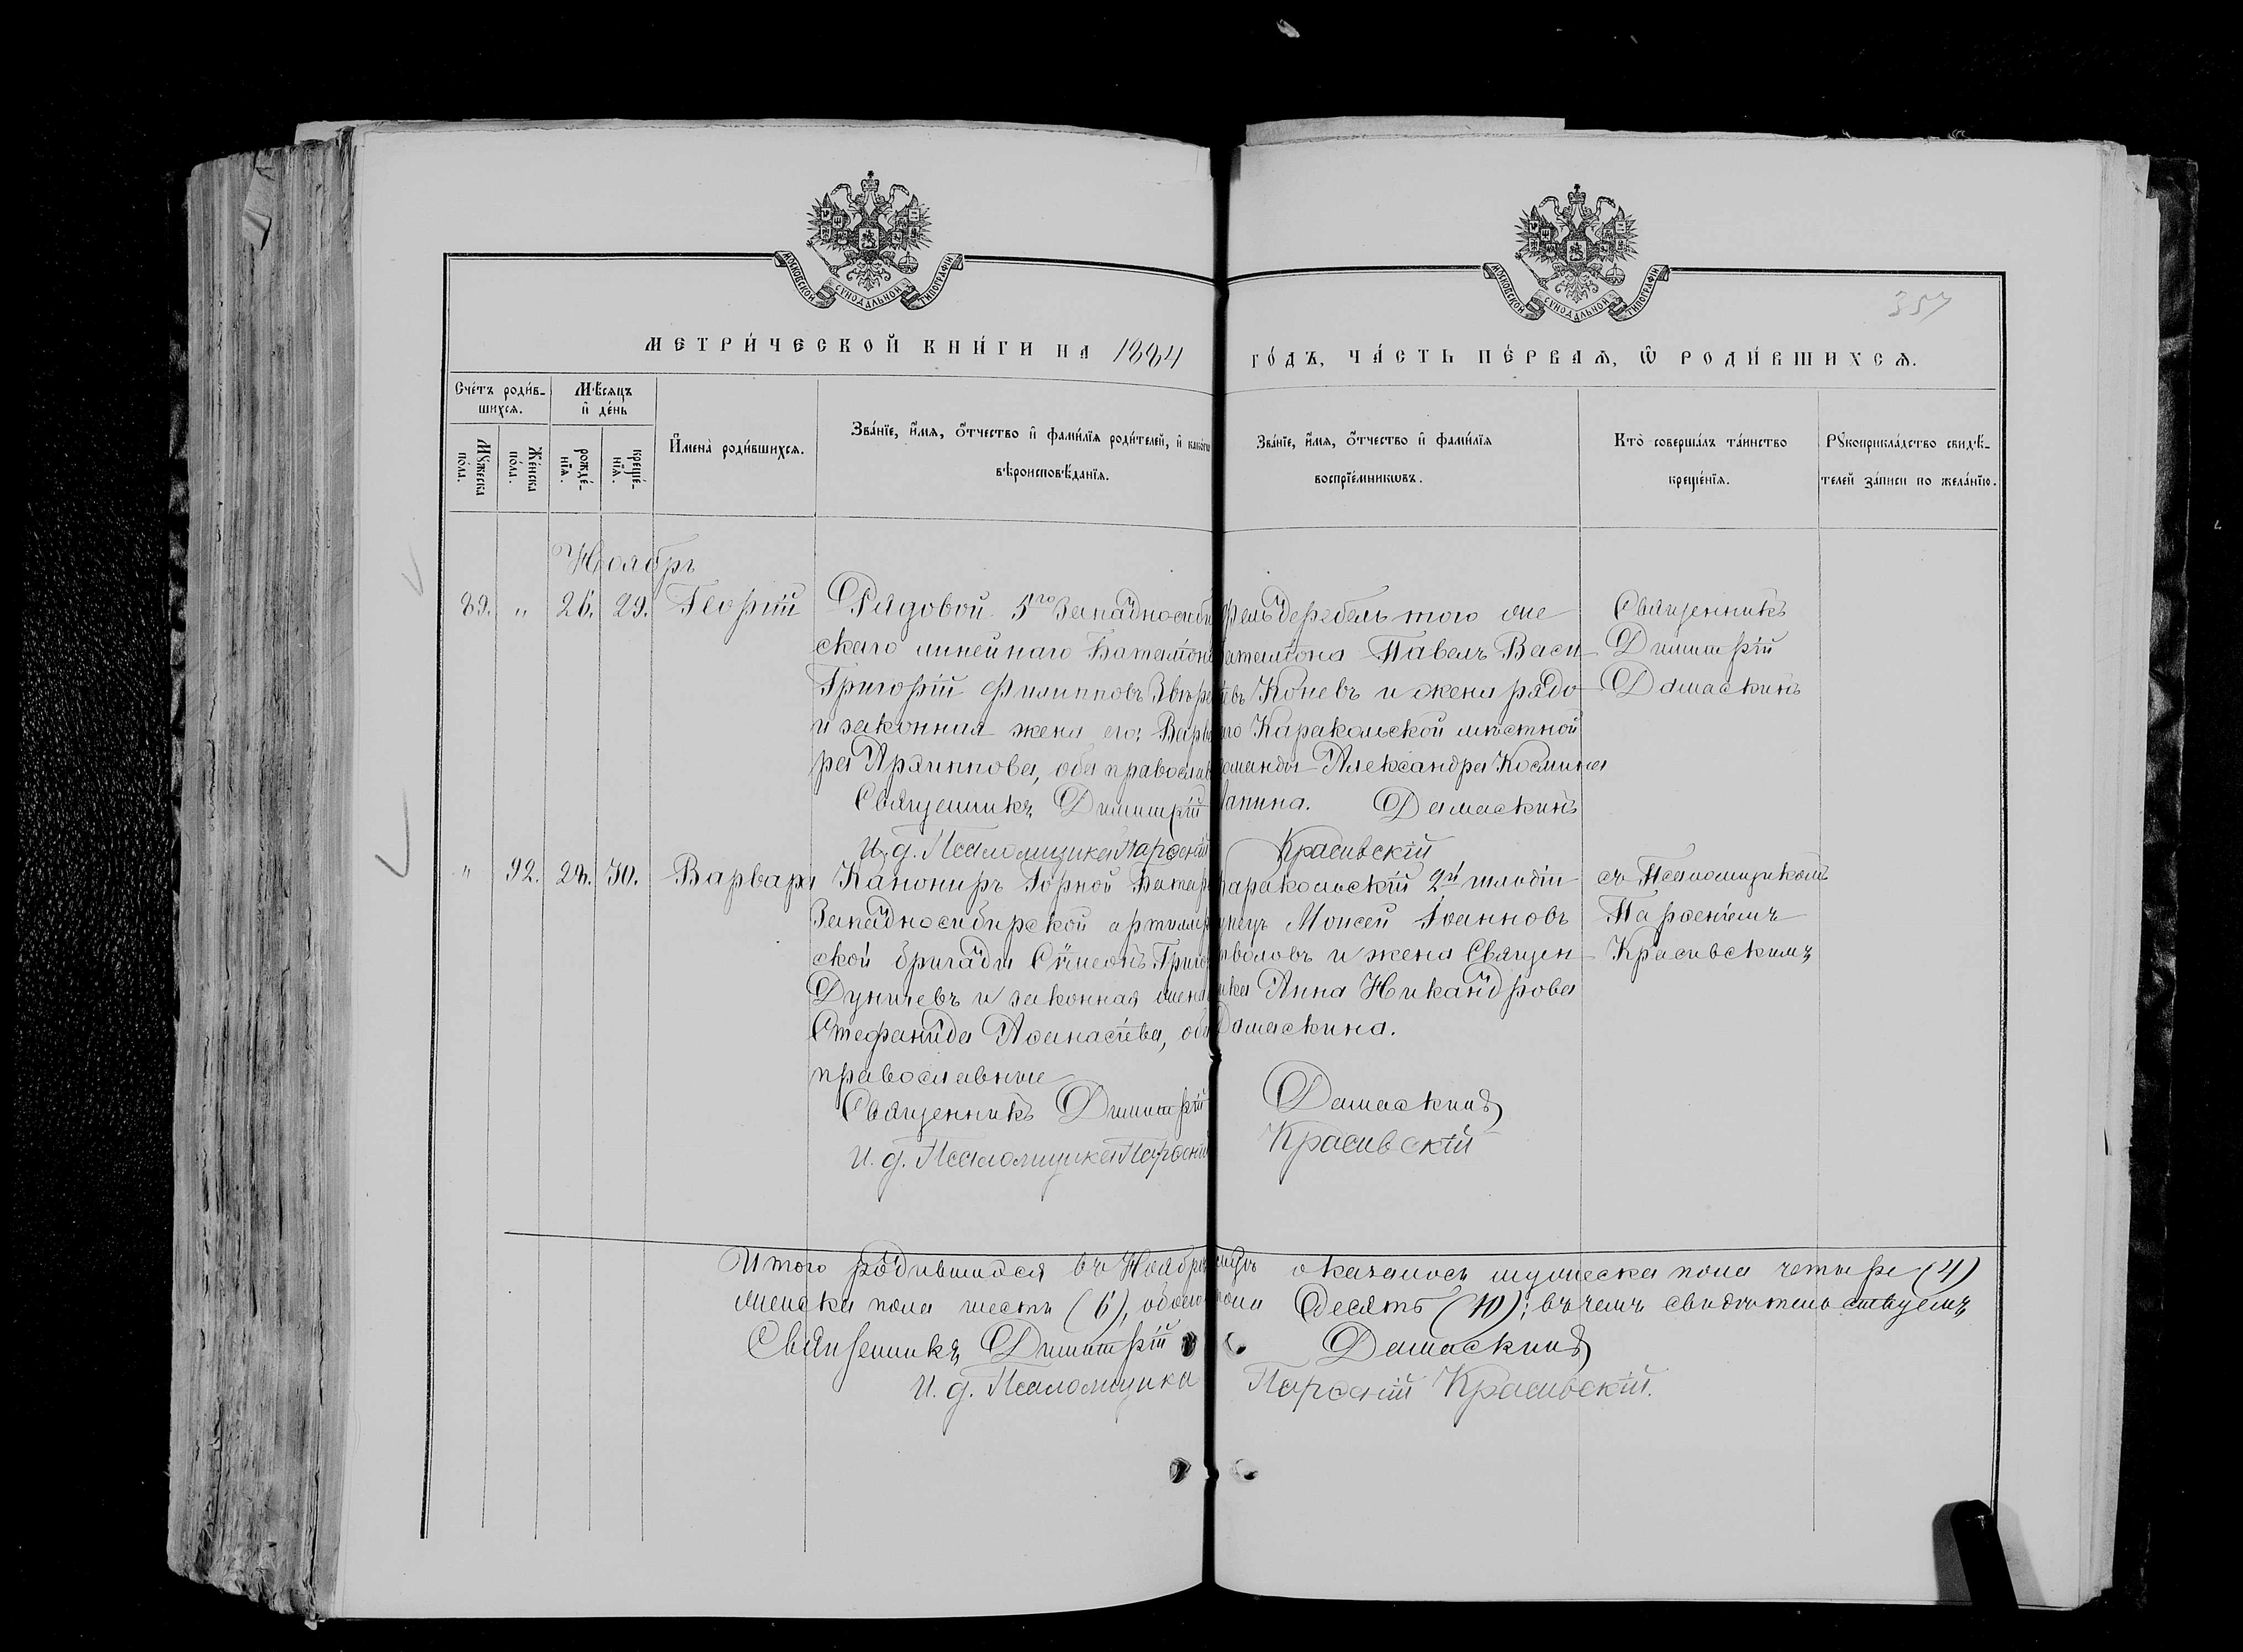 МОСКОВСКОЙ СѴНОДАЛЬНОЙ ТИПОГРАФІИ
МОСКОВСКОЙ СѴНОДАЛЬНОЙ ТИПОГРАФІИ
357
МЕТРИ́ЧЕСКОЙ КНИ́ГИ НА 1884 ГО́ДЪ, ЧА́СТЬ ПЕ́РВАѦ, Ѡ҆ РОДИ́ВШИХСѦ.
Сче́тъ роди́в-
шихсѧ.
Мꙋжеска по́ла.
Же́нска по́ла.
Мѣ́сѧцъ
и҆ де́нь
рожде́-
нїѧ.
креще́-
нїѧ.
И҆мена̀ роди́вшихсѧ.
Зва́нїе, и҆́мѧ, ѻ҆́тчество и҆ фами́лїѧ роди́телей, и҆ како́гѡ
вѣроисповѣ́данїѧ.
Зва́нїе, и҆́мѧ, ѻ҆́тчество и҆ фами́лїѧ
воспрїе́мникѡвъ.
Кто̀ соверша́лъ та́инство
креще́нїѧ.
Рꙋкоприкла́дство свидѣ́-
телей за́писи по жела́нїю.
Ноябрь
89. " 26. 29. Георгій
Рядовой 5го Западносиби
скаго линейнаго Баталіона
Григорій Филипповъ Звѣре
и законная жена его Варва
ра Архиппова, оба православ
Священникъ Димитрій
И. д. Псаломщика Парѳеній
Фельдфебель того же
Баталіона Павелъ Васи
евъ Коневъ и жена рядо
го Каракольской мѣстной
оманды Александра Космина
апина. Дамаскинъ
Красивскій
Священникъ
Димитрій
Дамаскинъ
" 92. 30. Варвара
Канониръ Горной Батаре
Западносибирской артиллер
ской бригады Сѵмеонъ Григор
Дуничевъ и законная жена
Стефанида Аѳанасіева, оба
православные
Священникъ Димитрій
И. д. Псаломщика Парѳеній
аракольскій 2й гильдіи
упецъ Моисей Іоанновъ
воловъ и жена Священ
ика Анна Никандрова
Дамаскина.
Дамаскинъ
Красивскій
съ Псаломщикомъ
Парѳеніемъ
Красивскимъ
Итого родившихся въ Ноябрѣ мѣсяцѣ оказалось мужеска пола четыре (4)
женска пола шесть (6), обоего пола десять (10); въ чемъ свидѣтельствуемъ
Священникъ Димитрій Дамаскинъ
И. д. Псаломщика Парѳеній Красивскій.